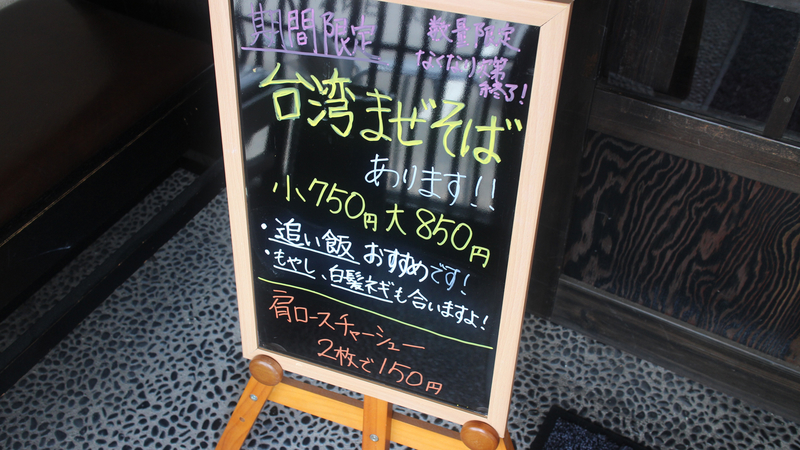 期間限定
数量限定
なくなり次第
終了!
台湾まぜそば
あります!!
小750円 大850円
・追い飯 おすすめです!
・もやし、白髪ネギも合いますよ!
肩ロースチャーシュー
2枚で150円